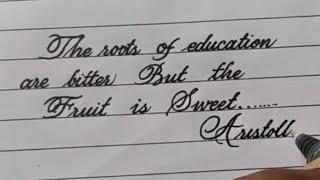 The roots of education
are bitter But the
Fruit is Sweet.......
Aristoll